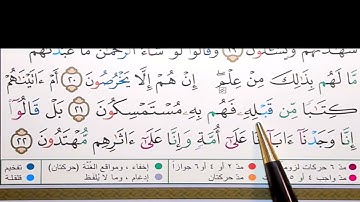 شَهَٰدَتُهُمْ وَيُسْـَٔلُونَ ۝١٩ وَقَالُوا۟ لَوْ شَآءَ ٱلرَّحْمَٰنُ مَا عَبَدْنَٰهُم
مَّا لَهُم بِذَٰلِكَ مِنْ عِلْمٍ إِنْ هُمْ إِلَّا يَخْرُصُونَ ۝٢٠ أَمْ ءَاتَيْنَٰهُمْ
كِتَٰبًا مِّن قَبْلِهِۦ فَهُم بِهِۦ مُسْتَمْسِكُونَ ۝٢١ بَلْ قَالُوٓا۟
إِنَّا وَجَدْنَآ ءَابَآءَنَا عَلَىٰٓ أُمَّةٍ وَإِنَّا عَلَىٰٓ ءَاثَٰرِهِم مُّهْتَدُونَ ۝٢٢
مدّ ٦ حركات لزوماً مدّ ٢ أو ٤ أو ٦ جوازاً إخفاء، ومواقع الغُنَّة (حركتان) تفخيم
مدّ واجب ٤ أو ٥ مدّ حركتان إدغام، وما لا يُلفَظ قلقلة